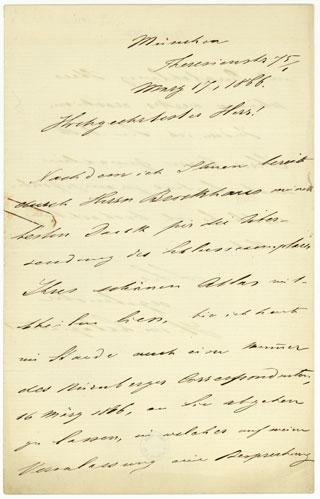 München
Theresienstr 75/1
März 17, 1866.
Hochgeehrtester Herr!
Nachdem ich Ihnen bereits
durch Herrn Brockhaus meinen
besten Dank für die Über-
sendung des
Ihres schönen Atlas mit-
theilen liess, bin ich heute
im Stande auch eine Nummer
des Nürnberger Correspondenten,
16 März 1866, an Sie abgehen
zu lassen, in welcher auf meine
Veranlassung eine Besprechung